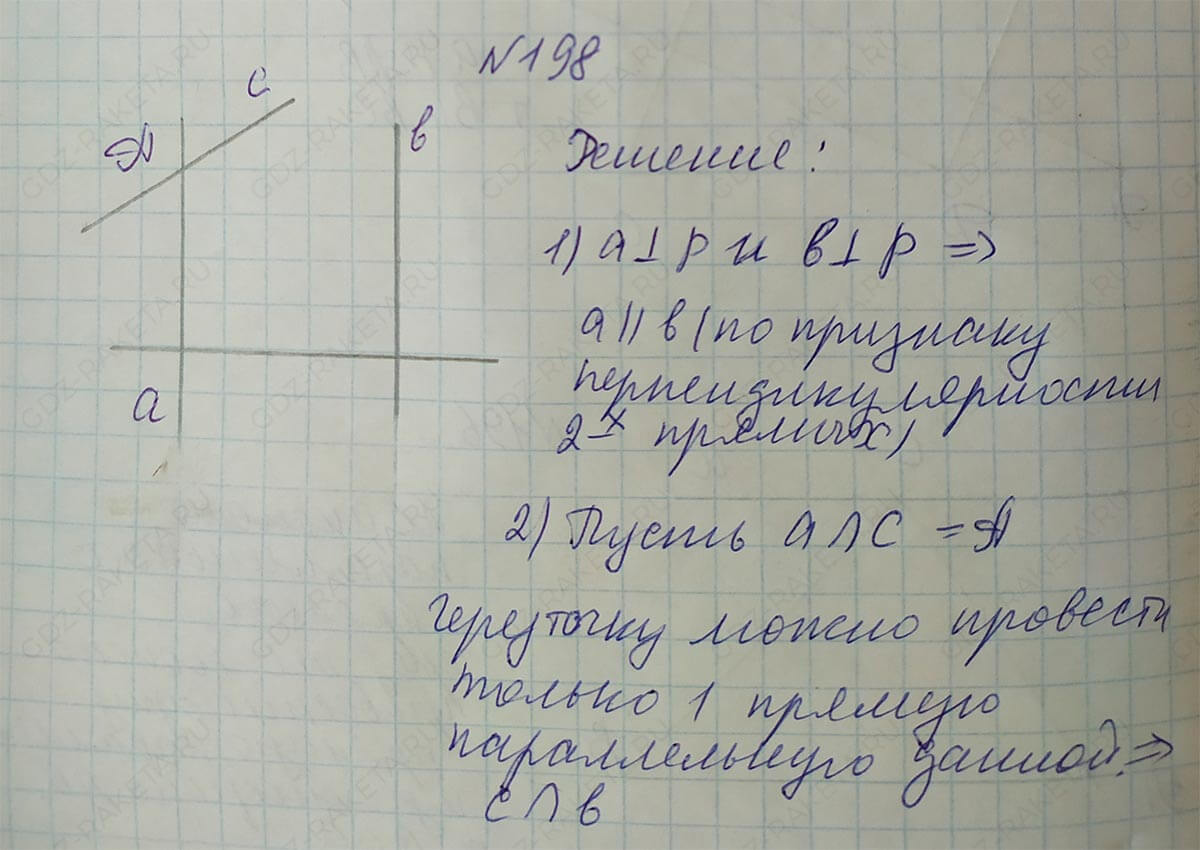 N198
c
A
в
a
Решение:
1) a⊥p и в⊥p =>
a||в (по признаку
перпендикулярности
2-х прямых)
2) Пусть a∩c = A
Через точку можно провести
только 1 прямую
параллельную данной. =>
c∩в
GDZ-RAKETA.RU